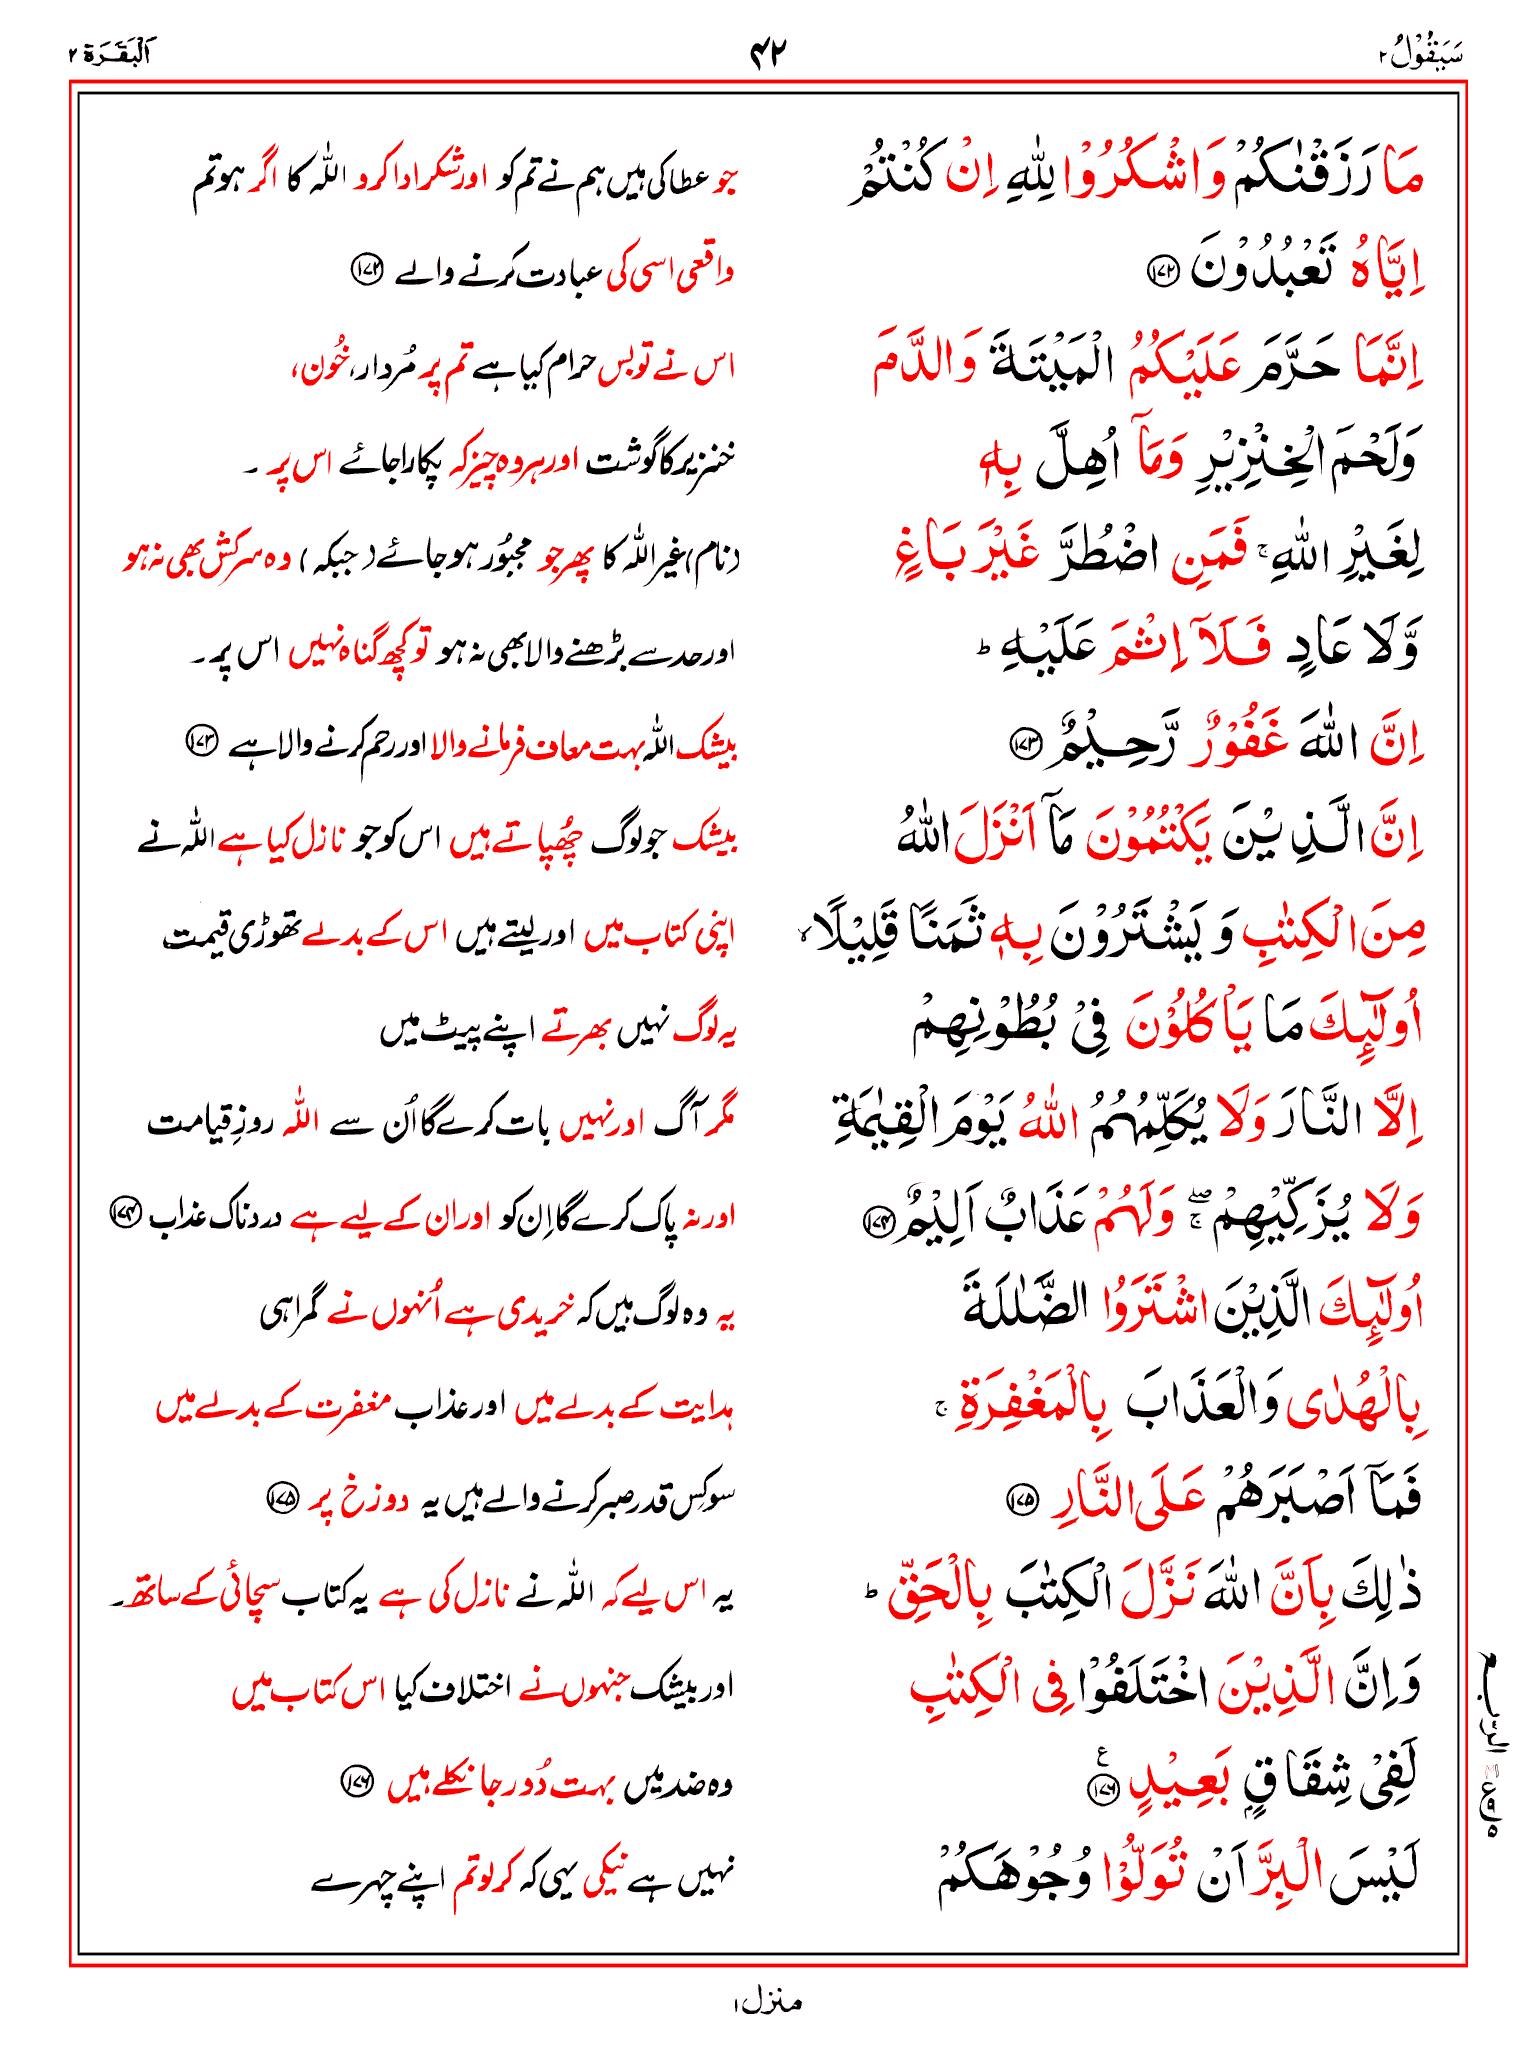 سَيَقُوْلُ ٢ ۴۲ اَلْبَقَرَة ٢
مَا رَزَقْنٰكُمْ وَاشْكُرُوْا لِلّٰهِ اِنْ كُنْتُمْ جو عطا کی ہیں ہم نے تم کو اور شکر ادا کرو اللہ کا اگر ہو تم
اِيَّاهُ تَعْبُدُوْنَ ۱۷۲ واقعی اسی کی عبادت کرنے والے ۱۷۲
اِنَّمَا حَرَّمَ عَلَيْكُمُ الْمَيْتَةَ وَالدَّمَ اس نے تو بس حرام کیا ہے تم پر مُردار، خُون،
وَلَحْمَ الْخِنْزِيْرِ وَمَآ اُهِلَّ بِهٖ خنزیر کا گوشت اور ہر وہ چیز کہ پکارا جائے اس پر ۔
لِغَيْرِ اللّٰهِ ۚ فَمَنِ اضْطُرَّ غَيْرَ بَاغٍ (نام) غیر اللہ کا پھر جو مجبُور ہو جائے (جبکہ) وہ سرکش بھی نہ ہو
وَّلَا عَادٍ فَلَآ اِثْمَ عَلَيْهِ ؕ اور حد سے بڑھنے والا بھی نہ ہو تو کچھ گناہ نہیں اس پر ۔
اِنَّ اللّٰهَ غَفُوْرٌ رَّحِيْمٌ ۱۷۳ بیشک اللہ بہت معاف فرمانے والا اور رحم کرنے والا ہے ۱۷۳
اِنَّ الَّذِيْنَ يَكْتُمُوْنَ مَآ اَنْزَلَ اللّٰهُ بیشک جو لوگ چُھپاتے ہیں اس کو جو نازل کیا ہے اللہ نے
مِنَ الْكِتٰبِ وَيَشْتَرُوْنَ بِهٖ ثَمَنًا قَلِيْلًا ۙ اپنی کتاب میں اور لیتے ہیں اس کے بدلے تھوڑی قیمت
اُولٰٓئِكَ مَا يَاْكُلُوْنَ فِيْ بُطُوْنِهِمْ یہ لوگ نہیں بھرتے اپنے پیٹ میں
اِلَّا النَّارَ وَلَا يُكَلِّمُهُمُ اللّٰهُ يَوْمَ الْقِيٰمَةِ مگر آگ اور نہیں بات کرے گا اُن سے اللہ روزِ قیامت
وَلَا يُزَكِّيْهِمْ ۖۚ وَلَهُمْ عَذَابٌ اَلِيْمٌ ۱۷۴ اور نہ پاک کرے گا اِن کو اور ان کے لیے ہے دردناک عذاب ۱۷۴
اُولٰٓئِكَ الَّذِيْنَ اشْتَرَوُا الضَّلٰلَةَ یہ وہ لوگ ہیں کہ خریدی ہے اُنہوں نے گمراہی
بِالْهُدٰى وَالْعَذَابَ بِالْمَغْفِرَةِ ۚ ہدایت کے بدلے میں اور عذاب مغفرت کے بدلے میں
فَمَآ اَصْبَرَهُمْ عَلَى النَّارِ ۱۷۵ سو کِس قدر صبر کرنے والے ہیں یہ دوزخ پر ۱۷۵
ذٰلِكَ بِاَنَّ اللّٰهَ نَزَّلَ الْكِتٰبَ بِالْحَقِّ ؕ یہ اس لیے کہ اللہ نے نازل کی ہے یہ کتاب سچائی کے ساتھ ۔
وَاِنَّ الَّذِيْنَ اخْتَلَفُوْا فِى الْكِتٰبِ اور بیشک جنہوں نے اختلاف کیا اس کتاب میں
لَفِيْ شِقَاقٍۢ بَعِيْدٍ ۱۷۶ ع وہ ضد میں بہت دُور جا نکلے ہیں ۱۷۶
لَيْسَ الْبِرَّ اَنْ تُوَلُّوْا وُجُوْهَكُمْ نہیں ہے نیکی یہی کہ کر لو تم اپنے چہرے
الرّبع
منزل ۱